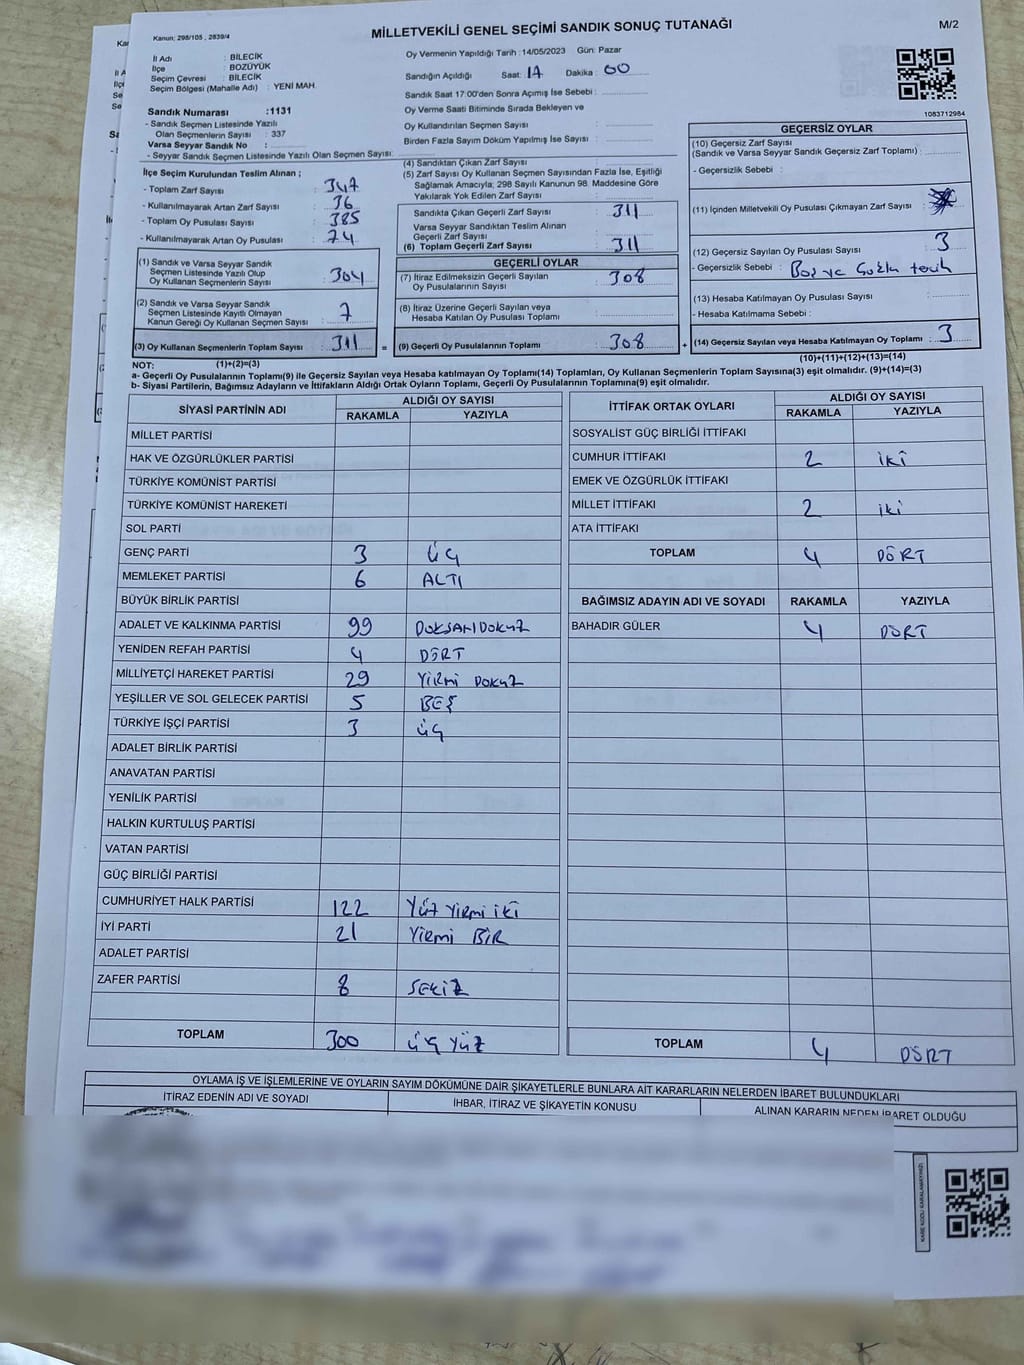 Kanun: 298/105 , 2839/4
MİLLETVEKİLİ GENEL SEÇİMİ SANDIK SONUÇ TUTANAĞI
M/2
İl Adı : BİLECİK
İlçe : BOZÜYÜK
Seçim Çevresi : BİLECİK
Seçim Bölgesi (Mahalle Adı) : YENİ MAH.
Sandık Numarası :1131
- Sandık Seçmen Listesinde Yazılı
Olan Seçmenlerin Sayısı : 337
Varsa Seyyar Sandık No :
- Seyyar Sandık Seçmen Listesinde Yazılı Olan Seçmen Sayısı:
Oy Vermenin Yapıldığı Tarih :14/05/2023 Gün: Pazar
Sandığın Açıldığı Saat: 17 Dakika : 00
Sandık Saat 17:00'den Sonra Açımış İse Sebebi :
Oy Verme Saati Bitiminde Sırada Bekleyen ve
Oy Kullandırılan Seçmen Sayısı :
Birden Fazla Sayım Döküm Yapılmış İse Sayısı :
1083712984
İlçe Seçim Kurulundan Teslim Alınan ;
- Toplam Zarf Sayısı : 347
- Kullanılmayarak Artan Zarf Sayısı : 36
- Toplam Oy Pusulası Sayısı : 385
- Kullanılmayarak Artan Oy Pusulası : 74
(1) Sandık ve Varsa Seyyar Sandık
Seçmen Listesinde Yazılı Olup
Oy Kullanan Seçmenlerin Sayısı : 304
(2) Sandık ve Varsa Seyyar Sandık
Seçmen Listesinde Kayıtlı Olmayan
Kanun Gereği Oy Kullanan Seçmen Sayısı : 7
(3) Oy Kullanan Seçmenlerin Toplam Sayısı : 311
(4) Sandıktan Çıkan Zarf Sayısı :
(5) Zarf Sayısı Oy Kullanan Seçmen Sayısından Fazla İse, Eşitliği
Sağlamak Amacıyla; 298 Sayılı Kanunun 98. Maddesine Göre
Yakılarak Yok Edilen Zarf Sayısı :
Sandıkta Çıkan Geçerli Zarf Sayısı : 311
Varsa Seyyar Sandıktan Teslim Alınan
Geçerli Zarf Sayısı :
(6) Toplam Geçerli Zarf Sayısı : 311
GEÇERLİ OYLAR
(7) İtiraz Edilmeksizin Geçerli Sayılan : 308
Oy Pusulalarının Sayısı
(8) İtiraz Üzerine Geçerli Sayılan veya
Hesaba Katılan Oy Pusulası Toplamı :
= (9) Geçerli Oy Pusulalarının Toplamı : 308
GEÇERSİZ OYLAR
(10) Geçersiz Zarf Sayısı
(Sandık ve Varsa Seyyar Sandık Geçersiz Zarf Toplamı) :
- Geçersizlik Sebebi :
(11) İçinden Milletvekili Oy Pusulası Çıkmayan Zarf Sayısı :
(12) Geçersiz Sayılan Oy Pusulası Sayısı : 3
- Geçersizlik Sebebi : Boş ve Çoklu tercih
(13) Hesaba Katılmayan Oy Pusulası Sayısı :
- Hesaba Katılmama Sebebi :
+ (14) Geçersiz Sayılan veya Hesaba Katılmayan Oy Toplamı : 3
NOT: (1)+(2)=(3) (10)+(11)+(12)+(13)=(14)
a- Geçerli Oy Pusulalarının Toplamı(9) ile Geçersiz Sayılan veya Hesaba katılmayan Oy Toplamı(14) Toplamları, Oy Kullanan Seçmenlerin Toplam Sayısına(3) eşit olmalıdır. (9)+(14)=(3)
b- Siyasi Partilerin, Bağımsız Adayların ve İttifakların Aldığı Ortak Oyların Toplamı, Geçerli Oy Pusulalarının Toplamına(9) eşit olmalıdır.
SİYASİ PARTİNİN ADI ALDIĞI OY SAYISI
RAKAMLA YAZIYLA
MİLLET PARTİSİ
HAK VE ÖZGÜRLÜKLER PARTİSİ
TÜRKİYE KOMÜNİST PARTİSİ
TÜRKİYE KOMÜNİST HAREKETİ
SOL PARTİ
GENÇ PARTİ 3 ÜÇ
MEMLEKET PARTİSİ 6 ALTI
BÜYÜK BİRLİK PARTİSİ
ADALET VE KALKINMA PARTİSİ 99 DOKSANDOKUZ
YENİDEN REFAH PARTİSİ 4 DÖRT
MİLLİYETÇİ HAREKET PARTİSİ 29 YİRMİ DOKUZ
YEŞİLLER VE SOL GELECEK PARTİSİ 5 BEŞ
TÜRKİYE İŞÇİ PARTİSİ 3 ÜÇ
ADALET BİRLİK PARTİSİ
ANAVATAN PARTİSİ
YENİLİK PARTİSİ
HALKIN KURTULUŞ PARTİSİ
VATAN PARTİSİ
GÜÇ BİRLİĞİ PARTİSİ
CUMHURİYET HALK PARTİSİ 122 YÜZ YİRMİ İKİ
İYİ PARTİ 21 YİRMİ BİR
ADALET PARTİSİ
ZAFER PARTİSİ 8 SEKİZ
TOPLAM 300 ÜÇ YÜZ
İTTİFAK ORTAK OYLARI ALDIĞI OY SAYISI
RAKAMLA YAZIYLA
SOSYALİST GÜÇ BİRLİĞİ İTTİFAKI
CUMHUR İTTİFAKI 2 İKİ
EMEK VE ÖZGÜRLÜK İTTİFAKI
MİLLET İTTİFAKI 2 İKİ
ATA İTTİFAKI
TOPLAM 4 DÖRT
BAĞIMSIZ ADAYIN ADI VE SOYADI RAKAMLA YAZIYLA
BAHADIR GÜLER 4 DÖRT
TOPLAM 4 DÖRT
OYLAMA İŞ VE İŞLEMLERİNE VE OYLARIN SAYIM DÖKÜMÜNE DAİR ŞİKAYETLERLE BUNLARA AİT KARARLARIN NELERDEN İBARET BULUNDUKLARI
İTİRAZ EDENİN ADI VE SOYADI İHBAR, İTİRAZ VE ŞİKAYETİN KONUSU ALINAN KARARIN NEDEN İBARET OLDUĞU
KARE KODU KARALAMAYINIZ!